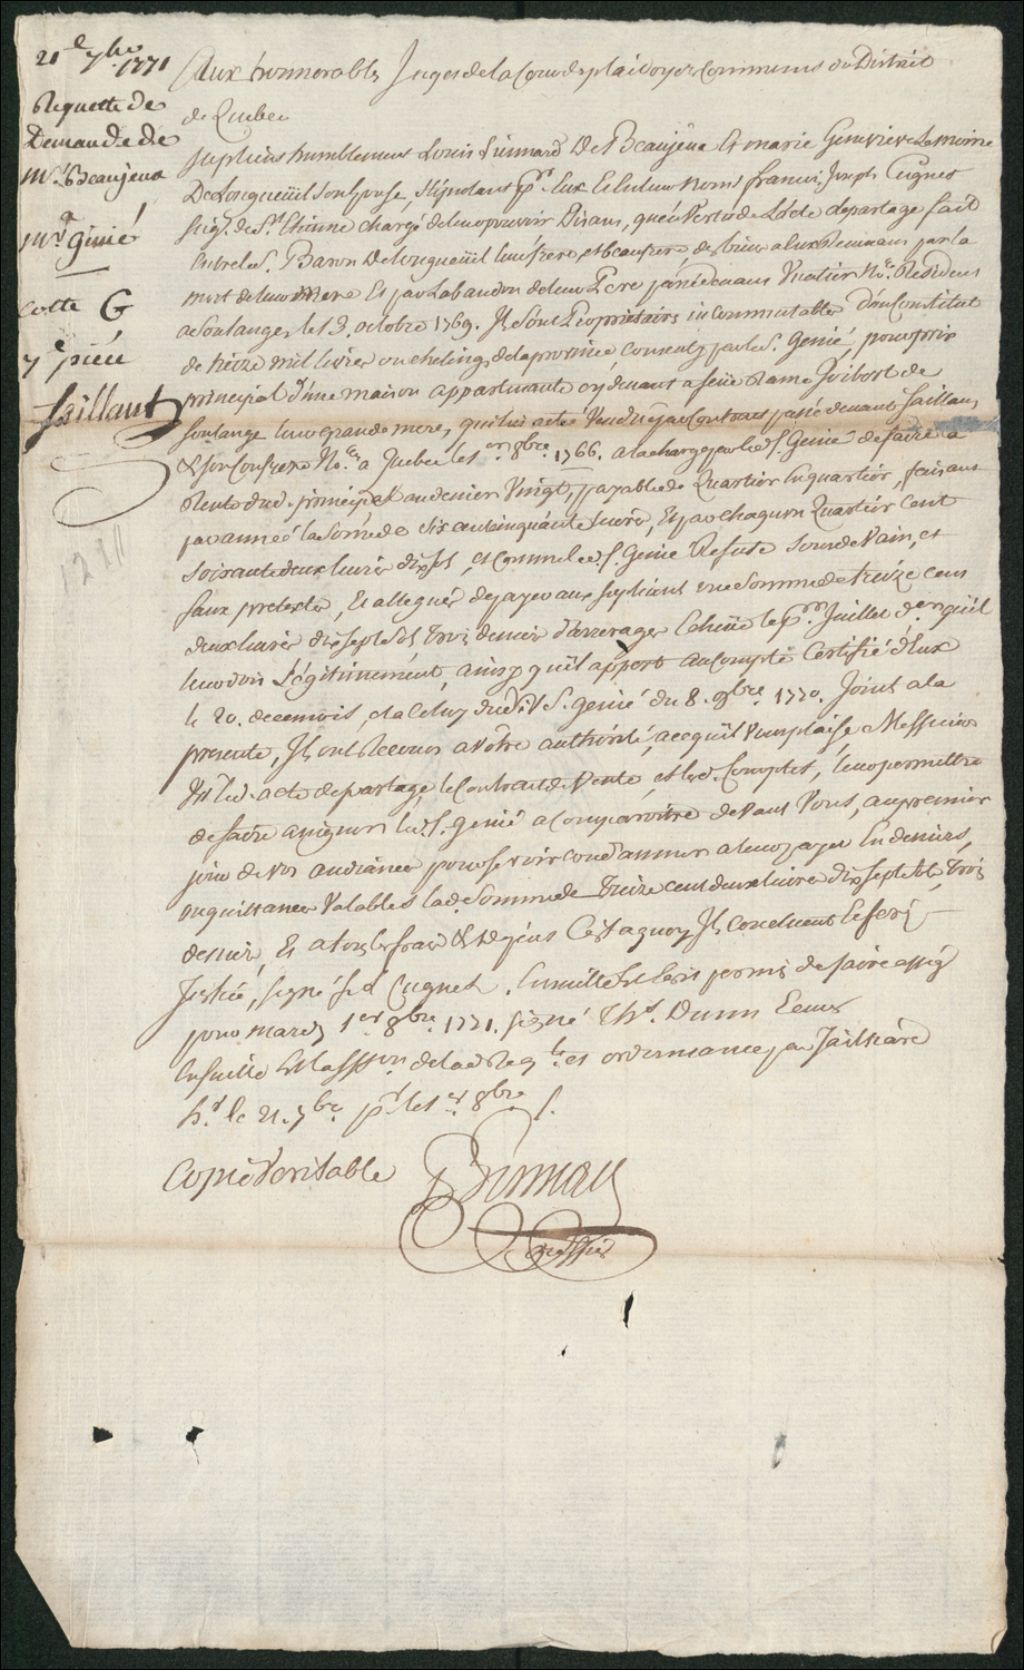 21e 7bre 1771
Requette de
Demande de
Mr. Beaujeux
Mr. Genié
cotte G
7e piéce
Saillant
1271
Aux honnorables Juges de la Cour des plaidoyers Communs du District
de Quebec
suplient humblement Louis Lienard De Beaujeux Et marie Genevieve Lemoine
De Longueüil son Epouse, stipulant pr. Eux Et en leur Noms francois Joseph Cugnet
seigr. de St. Etienne chargé de leur pouvoir Disans, qu'en Vertu de L'acte de partage fait
Entre le S. Baron De Longueüil leur frere et beaufrere, des biens a Eux Revenans par la
mort de leur Mere Et par Labandon de leur Pere passé devant Notaire Resident
a Soulange, le 13. octobre 1769. Ils sont Propriétaires incommutables D'un Constitut
de treize mil livres ou chelings de la province, consenty par le S. Genié, pour prix
principal d'une maison appartenante cy devant a feüe Dame Joibert de
Soulange leur grande mere, qui lui a été Vendüe par Contract passé devant Saillant
& son Confrere Nores. a Quebec le 1er. 8bre. 1766. a la charge par led. S. Genié de faire la
Rente dud. principal au denier Vingt, payable de Quartier En quartier, faisant
par année la somme de six cent cinquante livres, Et par chaqu'un Quartier cent
soixante deux livres dix sols, et comme led. S. Genié Refuse sous de Vain, et
faux pretextes, Et allegués de payer aux suplients une Somme de treize cens
deux livres dix sept sols trois deniers d'arrerages Echeüe le pr. Juillet der. qu'il
leur doit Légitimement, ainsy qu'il appert au Compte Certifié d'Eux
le 20. de ce mois, et a Celuy dudit S. Genié du 8. 9bre. 1770. Joint a la
presente, Ils ont Recours a Votre authorité, a ce qu'il Vous plaise, Messieurs
Vu led. acte de partage, le Contract de Vente, et lesd. Comptes, leur permettre
de faire assigner led. S. Genié a Comparoitre devant Vous, au premier
jour de Vos audiances pour se voir condamner a leur payer En deniers,
ou quittances Valables lad. Somme de treize cent deux livres dix sept sols trois
deniers, Et a tous les frais & depens C'est a quoy Ils Concluent Et ferés
Justice, signé f. J. Cugnet. En suitte Est Ecrit permis de faire assigr
pour mardy 1er 8bre. 1771. signé Ths. Dunn
Ensuitte Est Lassion. de lad. Reqte. et ordonnance par
hr. le 21. 7bre pr. le 1er. 8bre /.
Copie Veritable
greffier